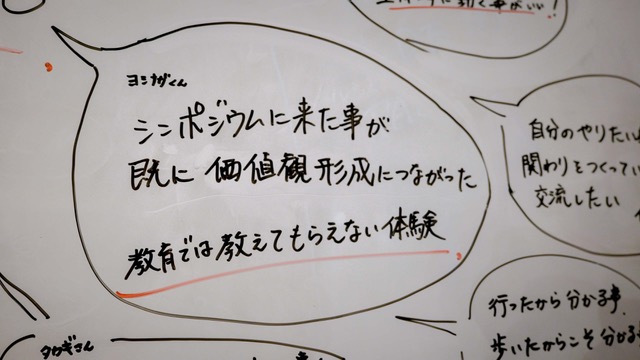 ヨシナガくん
シンポジウムに来た事が
既に価値観形成につながった
教育では教えてもらえない体験
自分のやりたい
関わりをつくってい
交流したい
行ったから分かる事
歩いたからこそ分かる
タカギさん